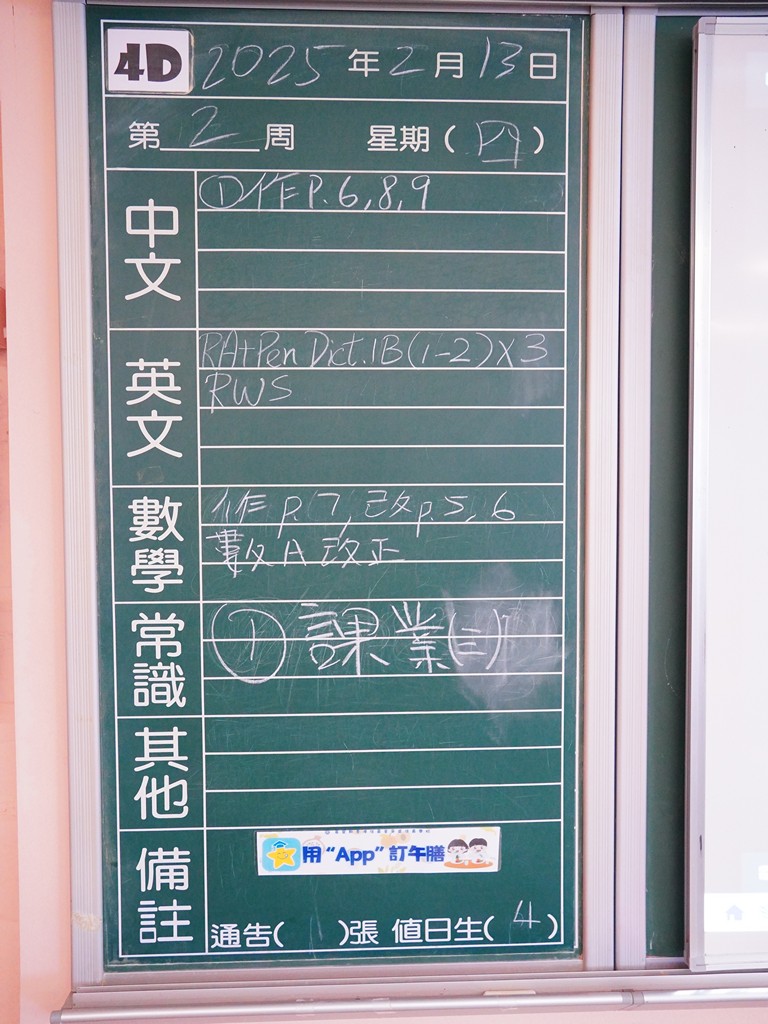 4D 2025年2月13日
第2周 星期(四)
中文
①作P.6,8,9
英文
RA+Pen Dict.1B(1-2)X3
RWS
數學
作p.7,改p.5,6
數A改正
常識
①課業(三)
其他
備註
用“App”訂午膳
通告( 1 )張 值日生( 4 )